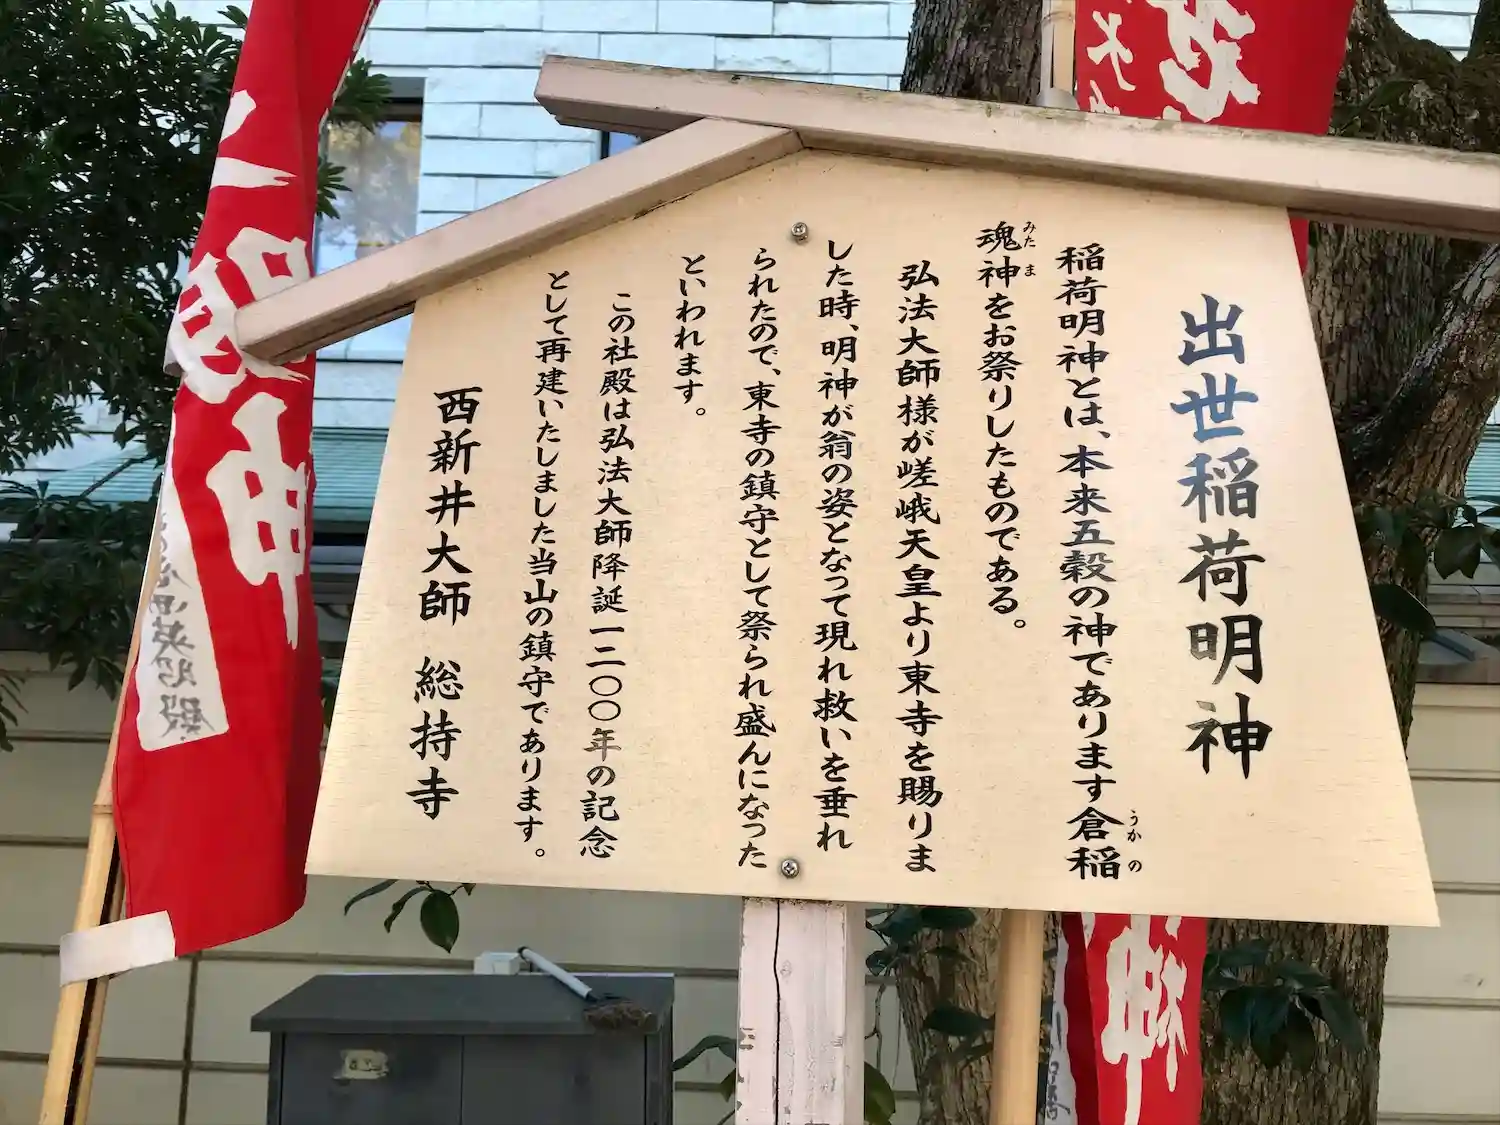 出世稲荷明神
稲荷明神とは、本来五穀の神であります倉稲
うかの
魂神をお祭りしたものである。
みたま
弘法大師様が嵯峨天皇より東寺を賜りま
した時、明神が翁の姿となって現れ救いを垂れ
られたので、東寺の鎮守として祭られ盛んになった
といわれます。
この社殿は弘法大師降誕一二〇〇年の記念
として再建いたしました当山の鎮守であります。
西新井大師 総持寺
明神
神